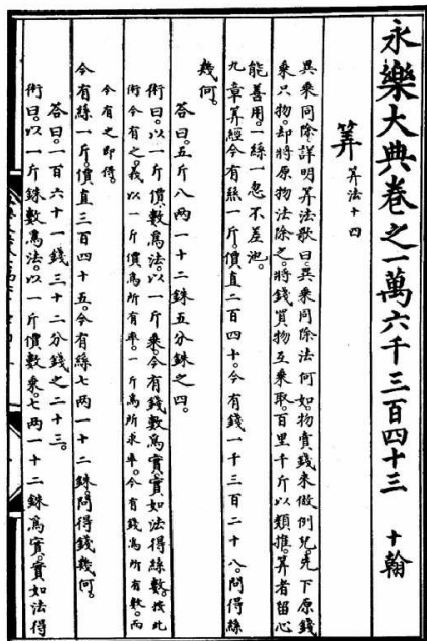 永樂大典卷之一萬六千三百四十三　十翰
筭 筭法十四
異乘同除詳明筭法歌曰異乘同除法何如。物賣錢來做例兒。先下原錢
乘只物。却將原物法除之。將錢買物互乘取。百里千斤以類推。筭者留心
能善用。一絲一忽不差池。
九章筭經今有絲一斤。價直二百四十。今有錢一千三百二十八。問得絲
幾何。
答曰。五斤八兩一十二銖五分銖之四。
術曰。以一斤價數爲法。以一斤乘今有錢數爲實。實如法得絲數。按此
術今有之義。以一斤價爲所有率。一斤爲所求率。今有錢爲所有數。而
今有之即得。
今有絲一斤。價直三百四十五。今有絲七兩一十二銖。問得錢幾何。
答曰。一百六十一錢三十二分錢之二十三。
術曰。以一斤銖數爲法。以一斤價數乘。七兩一十二銖爲實。實如法得